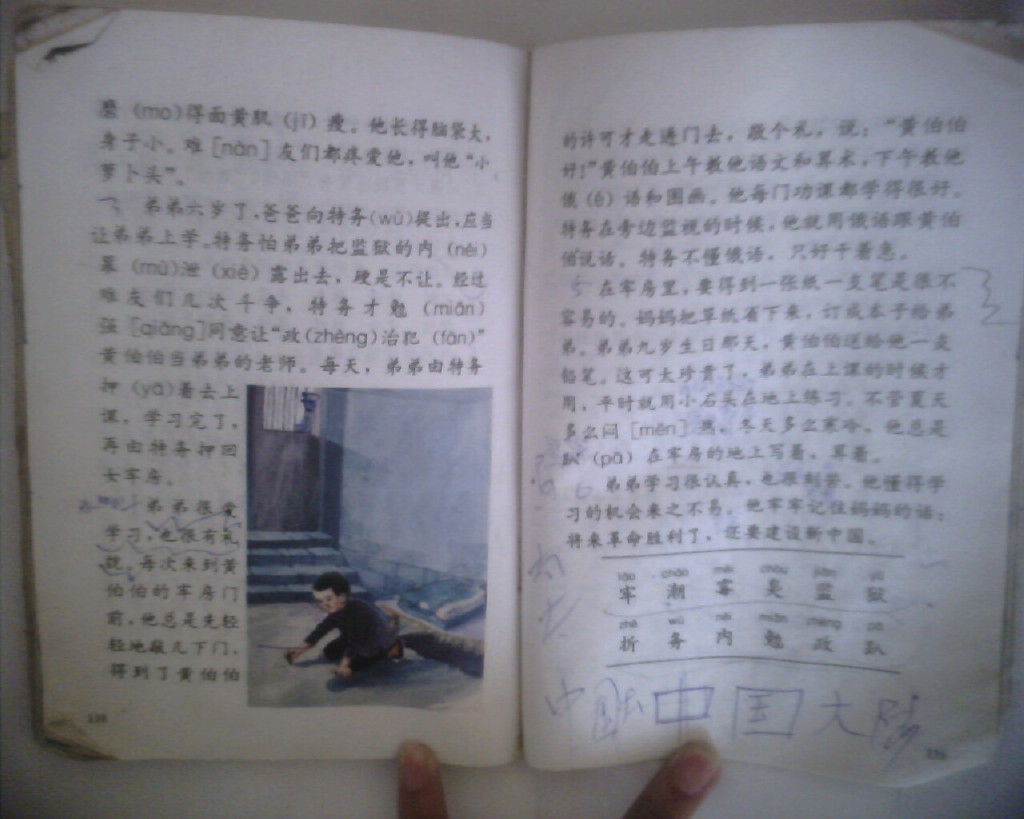 磨（mó）得面黄肌（jī）瘦。他长得脑袋大，
身子小。难［nàn］友们都疼爱他，叫他“小
萝卜头”。
弟弟六岁了，爸爸向特务（wù）提出，应当
让弟弟上学。特务怕弟弟把监狱的内（nèi）
幕（mù）泄（xiè）露出去，硬是不让。经过
难友们几次斗争，特务才勉（miǎn）
强［qiǎng］同意让“政（zhèng）治犯（fàn）”
黄伯伯当弟弟的老师。每天，弟弟由特务
押（yā）着去上
课，学习完了，
再由特务押回
女牢房。
弟弟很爱
学习，也很有礼
貌。每次来到黄
伯伯的牢房门
前，他总是先轻
轻地敲几下门，
得到了黄伯伯
的许可才走进门去，敬个礼，说：“黄伯伯
好！”黄伯伯上午教他语文和算术，下午教他
俄（é）语和图画。他每门功课都学得很好。
特务在旁边监视的时候，他就用俄语跟黄伯
伯说话。特务不懂俄语，只好干着急。
5 在牢房里，要得到一张纸一支笔是很不
容易的。妈妈把草纸省下来，订成本子给弟
弟。弟弟九岁生日那天，黄伯伯送给他一支
铅笔。这可太珍贵了，弟弟在上课的时候才
用，平时就用小石头在地上练习。不管夏天
多么闷［mēn］热，冬天多么寒冷，他总是
趴（pā）在牢房的地上写着，算着。
6 弟弟学习很认真，也很刻苦。他懂得学
习的机会来之不易。他牢牢记住妈妈的话：
将来革命胜利了，还要建设新中国。
láo cháo méi chòu jiān yù
牢 潮 霉 臭 监 狱
zhé wù nèi miǎn zhèng pā
折 务 内 勉 政 趴
中国 中国大陆